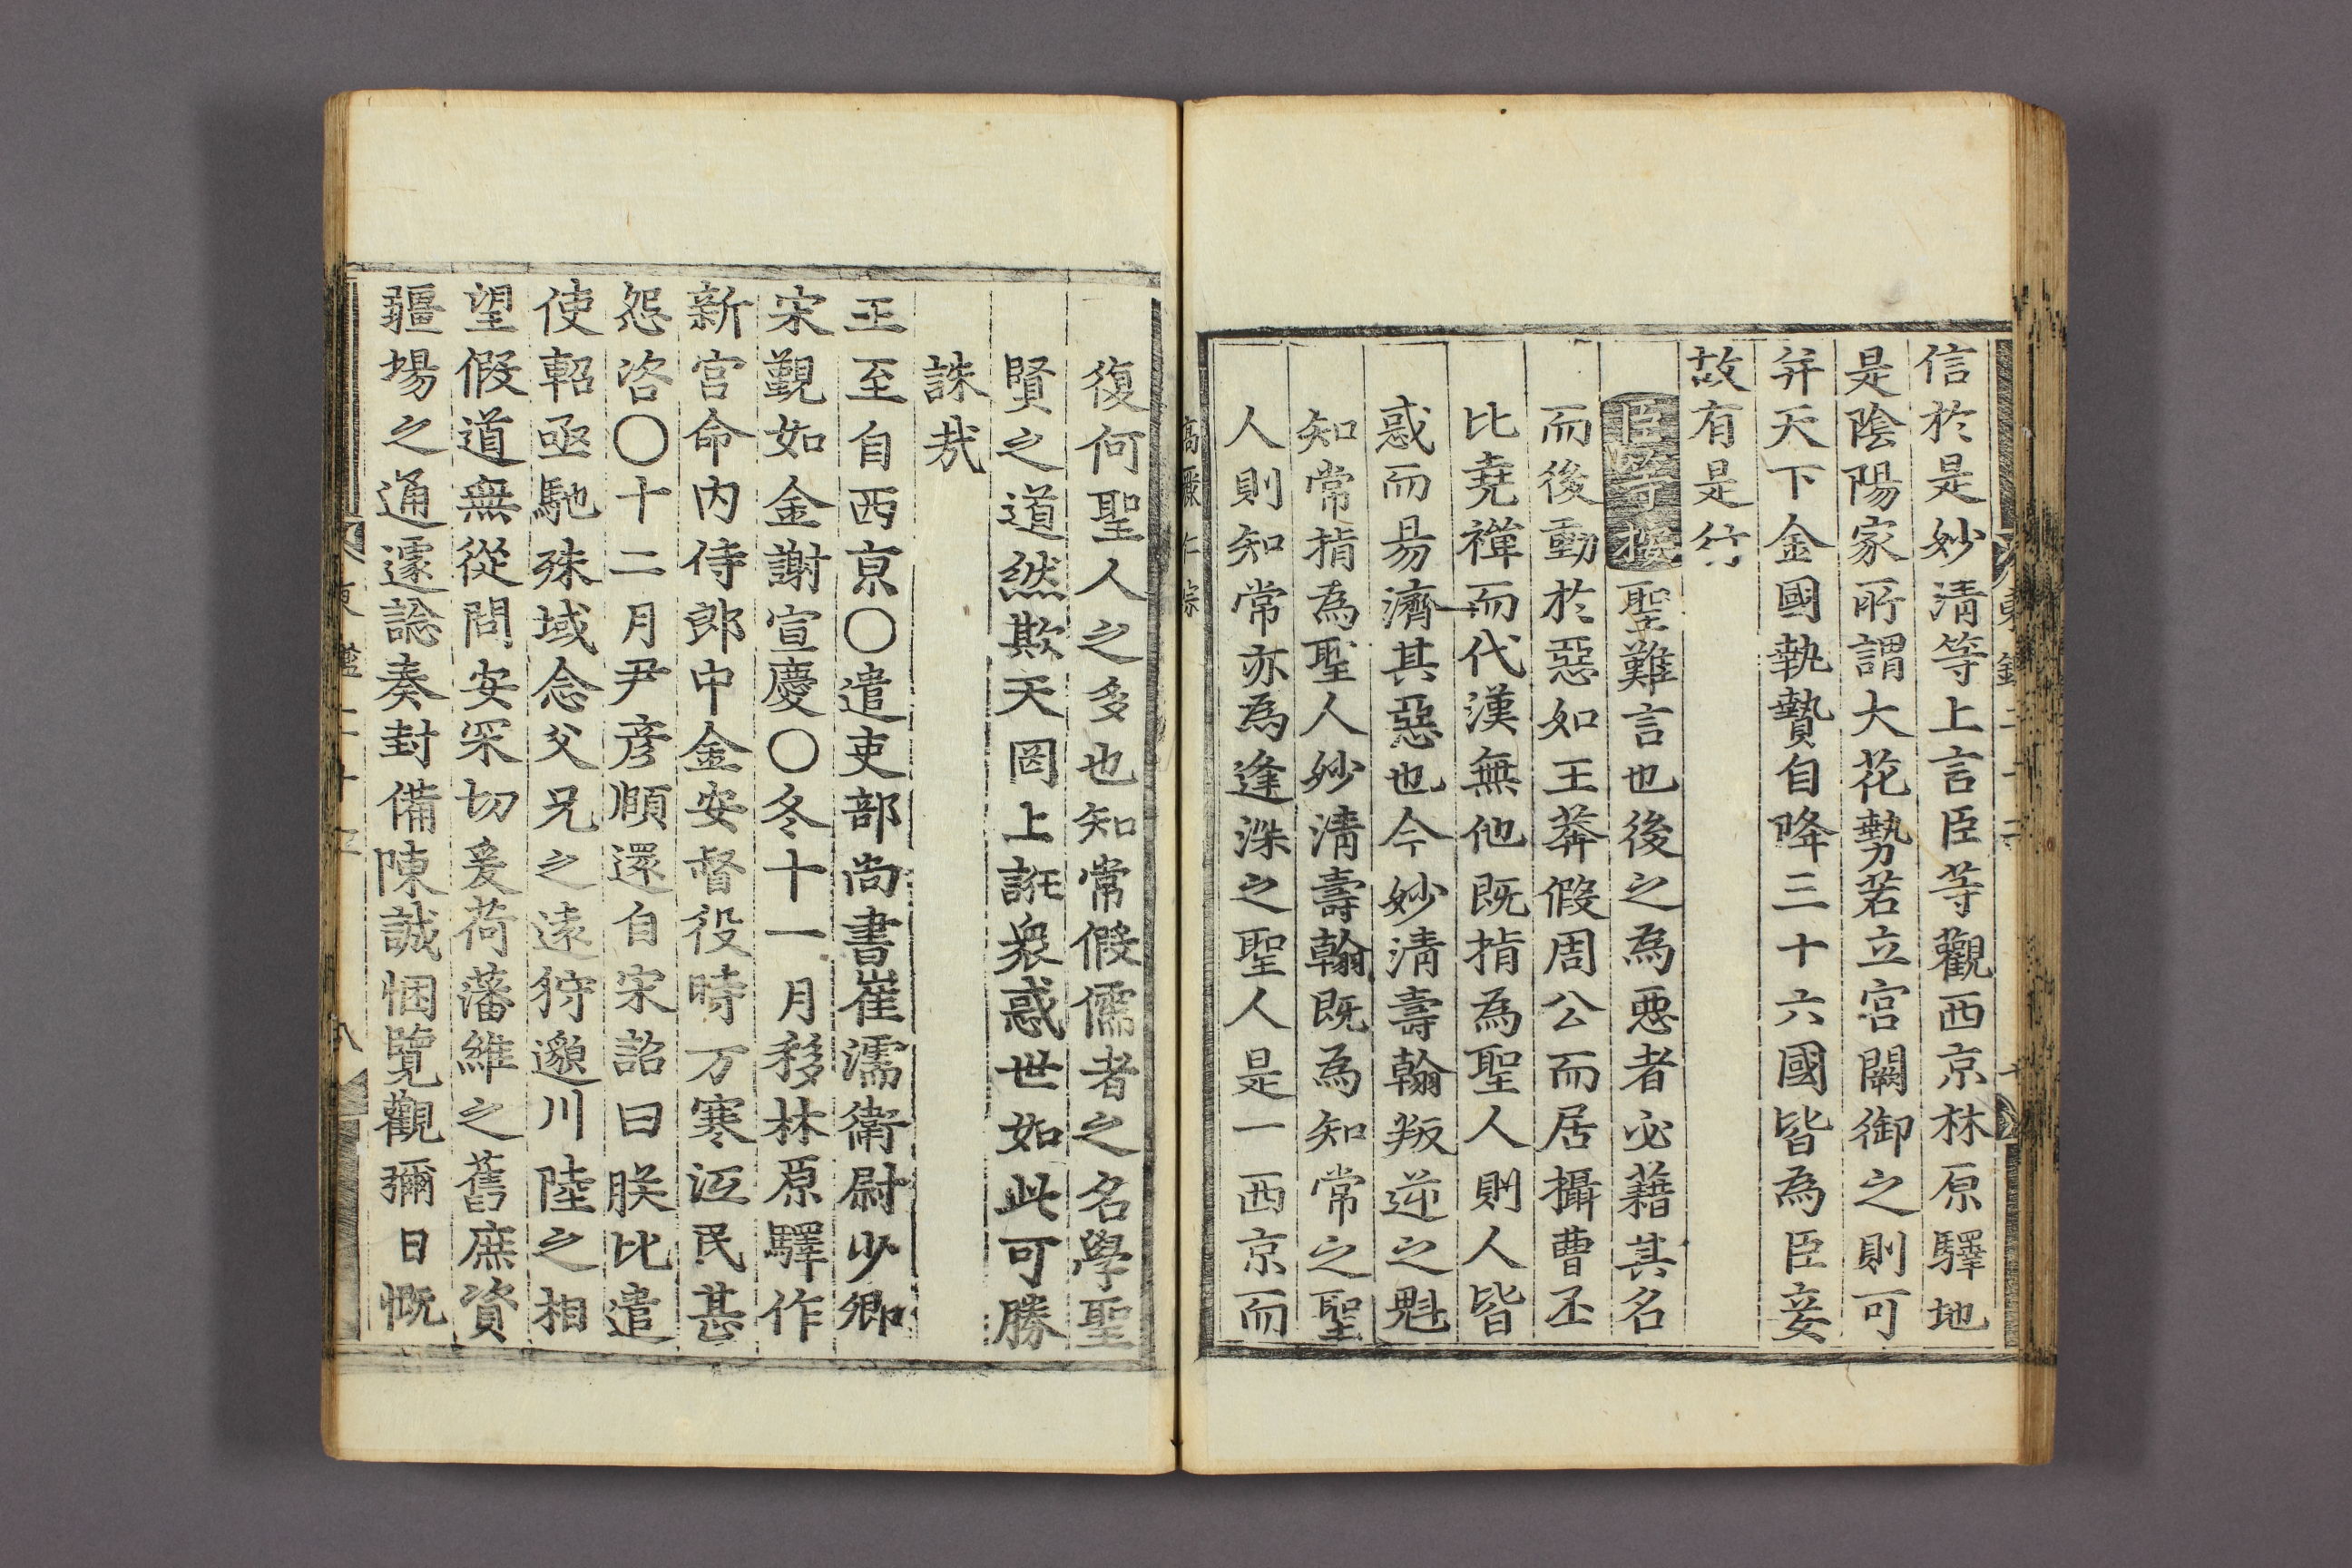 信於是妙淸等上言臣等觀西京林原驛地
是陰陽家所謂大花勢若立宮闕御之則可
幷天下金國執贄自降三十六國皆爲臣妾
故有是行
臣等按聖難言也後之爲惡者必藉其名
而後動於惡如王莽假周公而居攝曹丕
比堯禪而代漢無他旣指爲聖人則人皆
惑而易濟其惡也今妙淸壽翰叛逆之魁
知常指爲聖人妙淸壽翰旣爲知常之聖
人則知常亦爲逢深之聖人是一西京而
高麗仁宗
復何聖人之多也知常假儒者之名學聖
賢之道然欺天罔上誑衆惑世如此可勝
誅哉
王至自西京〇遣吏部尙書崔濡衛尉少卿
宋覲如金謝宣慶〇冬十一月移林原驛作
新宮命內侍郎中金安督役時方寒沍民甚
怨咨〇十二月尹彥頤還自宋詔曰朕比遣
使軺亟馳殊域念父兄之遠狩邈川陸之相
望假道無從問安罙切爰荷藩維之舊庶資
疆場之通遽諗奏封備陳誠悃覽觀彌日慨